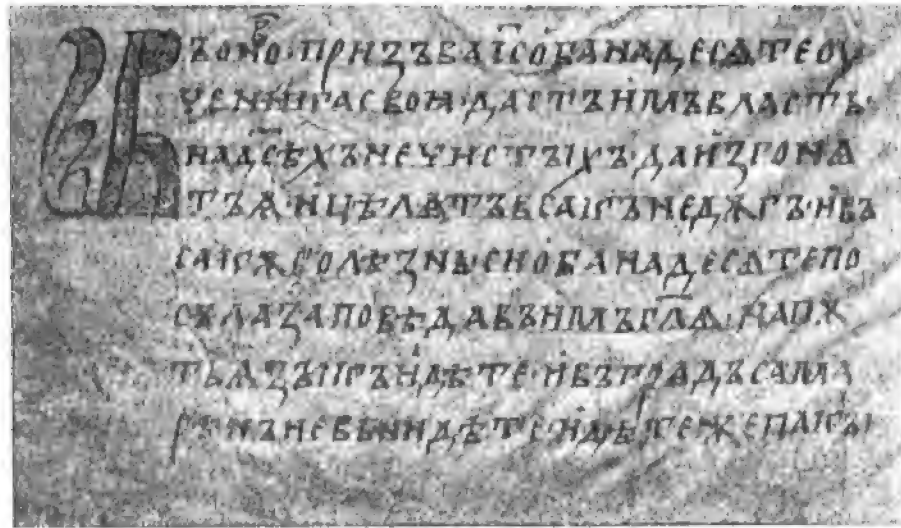 Въ оно·призъва іс оба надесѧте оу
ченика своꙗ·дастъ имъ власть·
над сѣхъ нечистꙑхъ·да изгонѧ
тъ ѧ·ицѣлѧтъ всакъ недѫгъ·и въ
сакѫ болѣзнь·си оба надесѧте по
съла заповѣдавъ имъ глѧ·на пѫ
ть ѧзꙑкъ не идѣте·и въ градъ сама
рѣнъ не вънидѣте·идѣте же пакꙑ